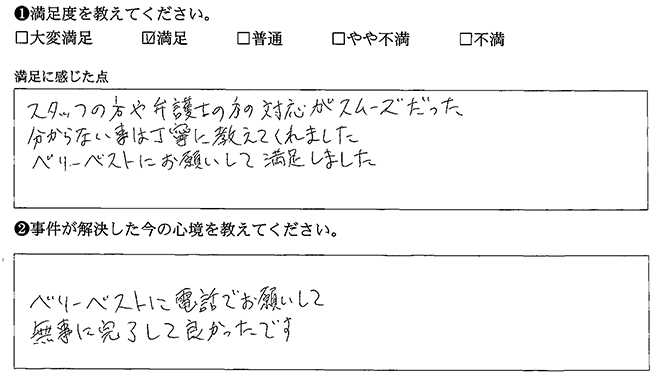 ❶満足度を教えてください。
□大変満足 ☑満足 □普通 □やや不満 □不満
満足に感じた点
スタッフの方や弁護士の方の対応がスムーズだった
分からない事は丁寧に教えてくれました
ベリーベストにお願いして満足しました
❷事件が解決した今の心境を教えてください。
ベリーベストに電話でお願いして
無事に完了して良かったです